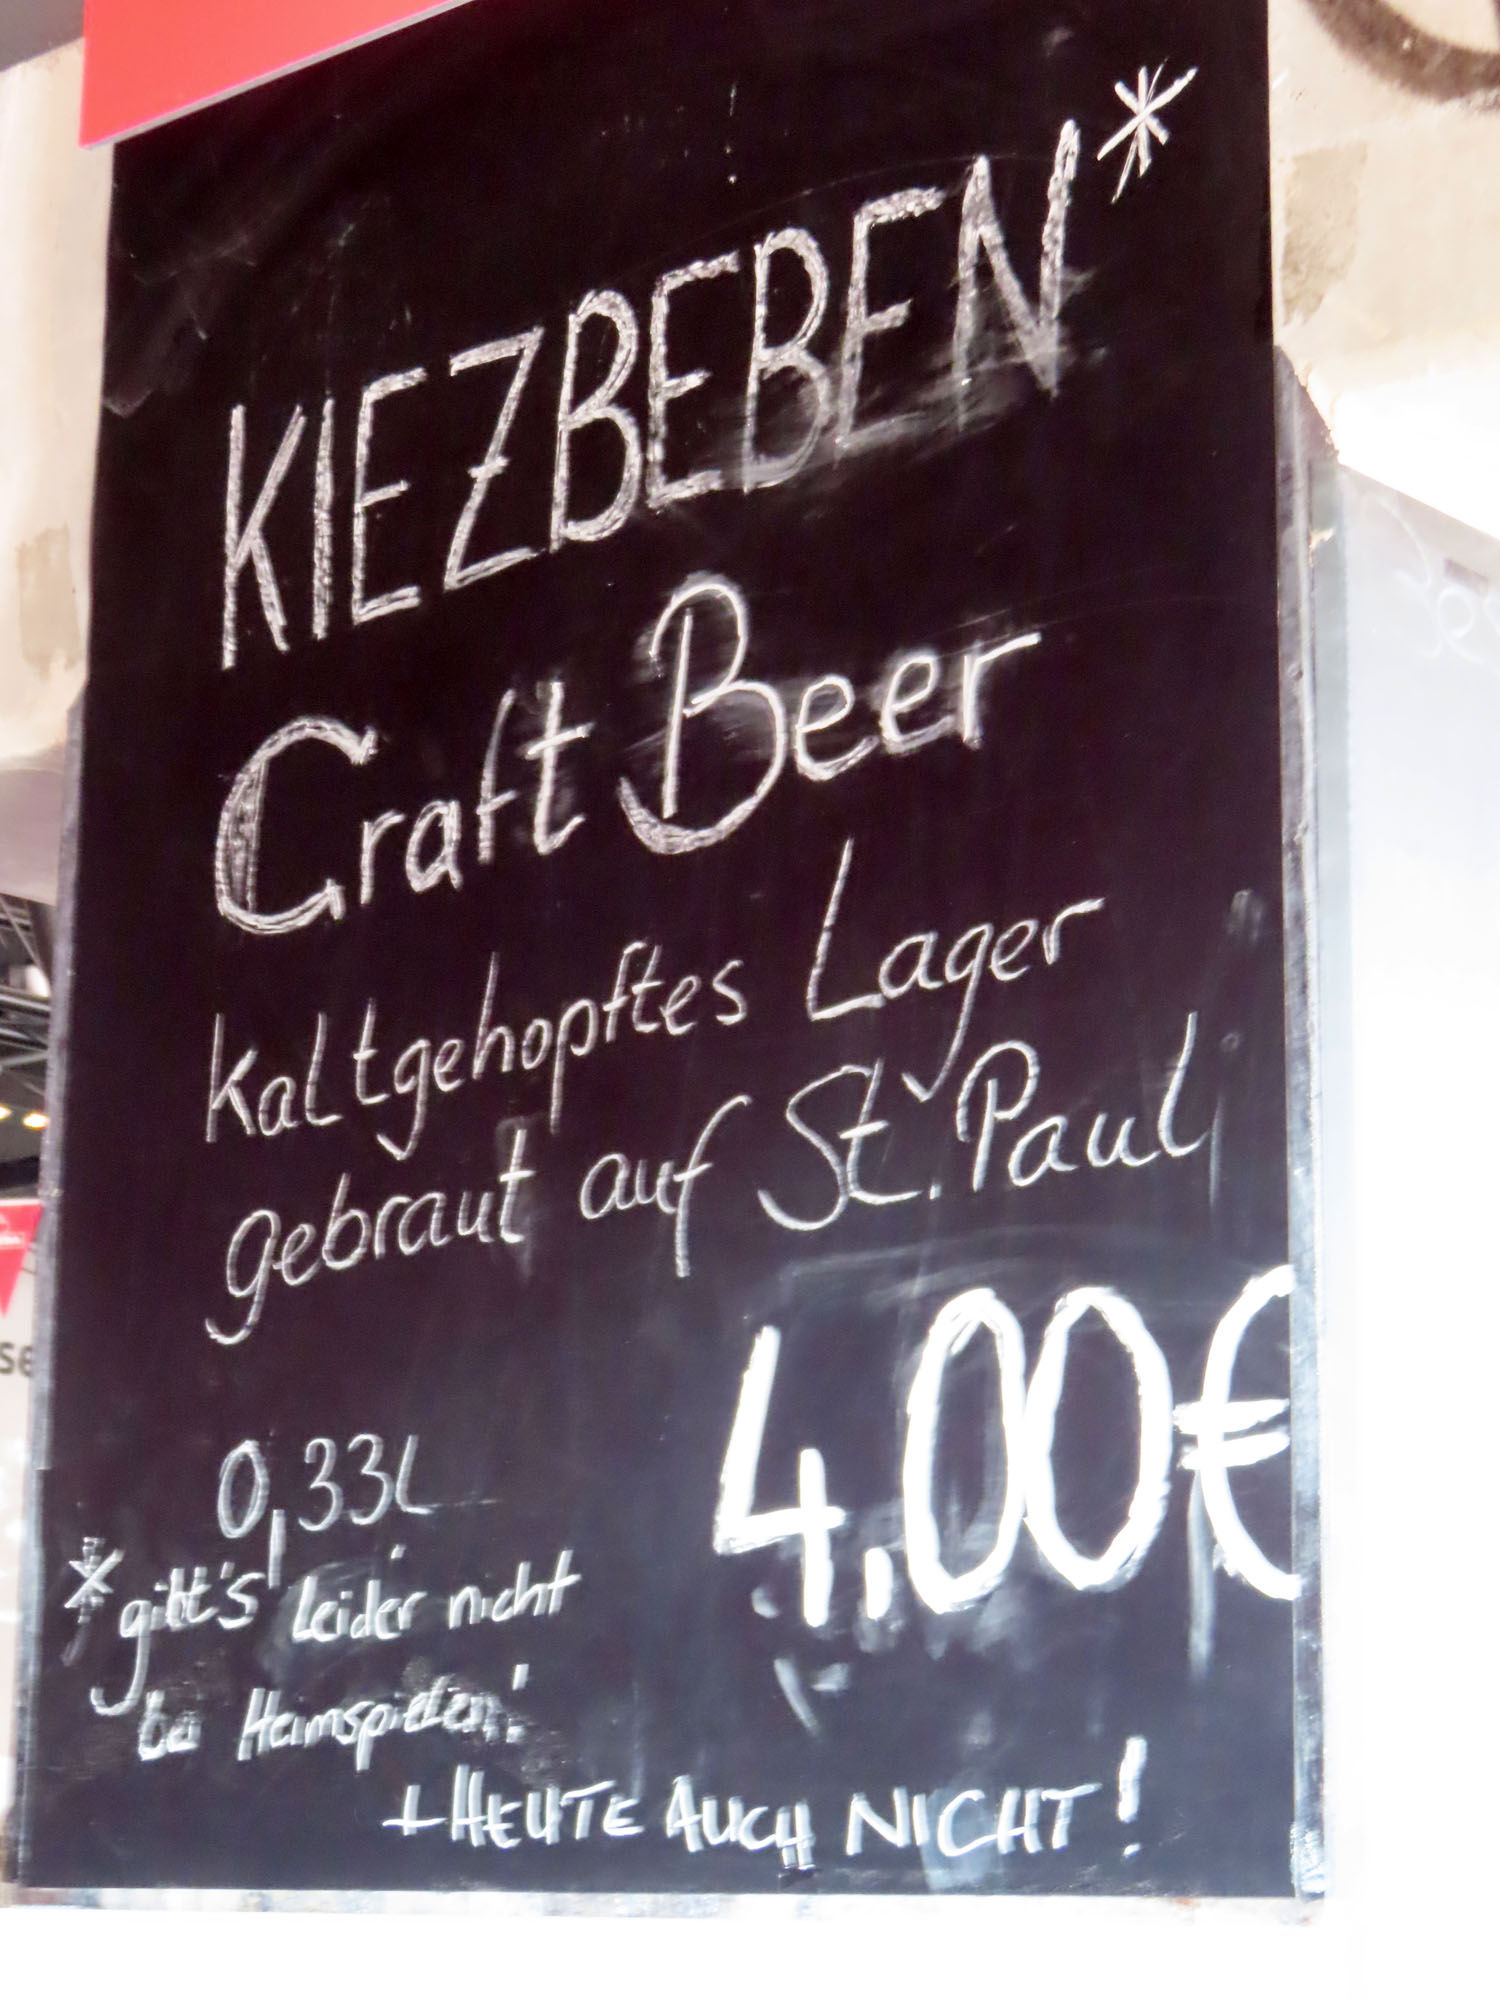 KIEZBEBEN*
Craft Beer
kaltgehopftes Lager
gebraut auf St. Pauli
4.00€
0,33l
*gibt's leider nicht
bei Heimspielen!
+ HEUTE AUCH NICHT!
se